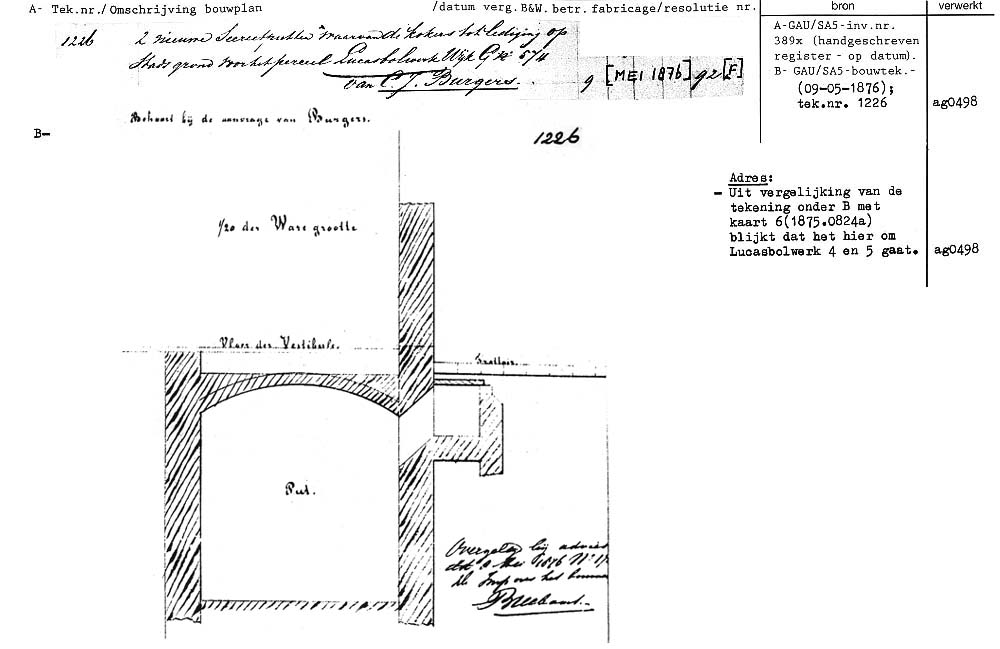 A- Tek.nr./Omschrijving bouwplan /datum verg.B&W.betr.fabricage/resolutie nr. bron verwerkt
1226 2 nieuwe Secreetputten waarvan de kokers tot lediging op
Stads grond voor het perceel Lucasbolwerk Wijk G No 574
van C. J. Burgers. 9 [MEI 1876] 92 [F]
A-GAU/SA5-inv.nr.
389x (handgeschreven
register - op datum).
B- GAU/SA5-bouwtek.-
(09-05-1876);
tek.nr. 1226 ag0498
B-
Behoort bij de aanvrage van Burgers.
1226
Adres:
- Uit vergelijking van de
tekening onder B met
kaart 6(1875.0824a)
blijkt dat het hier om
Lucasbolwerk 4 en 5 gaat. ag0498
1/20 der Ware grootte
Vloer der Vestibule.
Trottoir.
Put.
Overgelegd bij advies
dd 8 Mei 1876 No